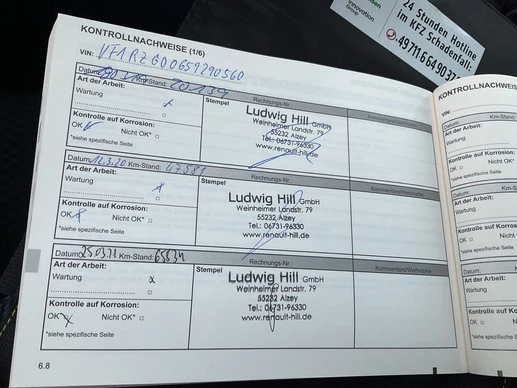 Innovation
Group
24 Stunden Hotline
im KFZ Schadenfall:
KONTROLLNACHWEISE (1/6)
VIN: VF1RZG00657290560
Datum: Km-Stand: 20239
Art der Arbeit:
Wartung x
Kontrolle auf Korrosion:
OK Nicht OK* □
*siehe spezifische Seite
Stempel
Rechnungs-Nr.:
Ludwig Hill GmbH
Weinheimer Landstr. 79
55232 Alzey
Tel.: 06731-96330
www.renault-hill.de
Kommentare/Vermerke
Datum: 12.3.20 Km-Stand:
Art der Arbeit:
Wartung x
□
Kontrolle auf Korrosion:
OK Nicht OK* □
*siehe spezifische Seite
Stempel
Rechnungs-Nr.:
Ludwig Hill GmbH
Weinheimer Landstr. 79
55232 Alzey
Tel.: 06731-96330
www.renault-hill.de
Kommentare/Vermerke
Datum: 25.03.21 Km-Stand:
Art der Arbeit:
Wartung x
□
Kontrolle auf Korrosion:
OK x Nicht OK* □
*siehe spezifische Seite
Stempel
Rechnungs-Nr.:
Ludwig Hill GmbH
Weinheimer Landstr. 79
55232 Alzey
Tel.: 06731-96330
www.renault-hill.de
Kommentare/Vermerke
6.8
KONTROLLNACHWEISE
VIN:
Datum: Km-Stand
Art der Arbeit:
Wartung
Kontrolle auf Korrosion:
OK □ Nicht OK*
*siehe spezifische Seite
Datum: Km-Stand
Art der Arbeit:
Wartung
Kontrolle auf Korrosion:
OK □ Nicht OK*
*siehe spezifische Seite
Datum: Km-Stand
Art der Arbeit:
Wartung
Kontrolle auf Korrosion:
OK □ Nicht OK*
*siehe spezifische Seite